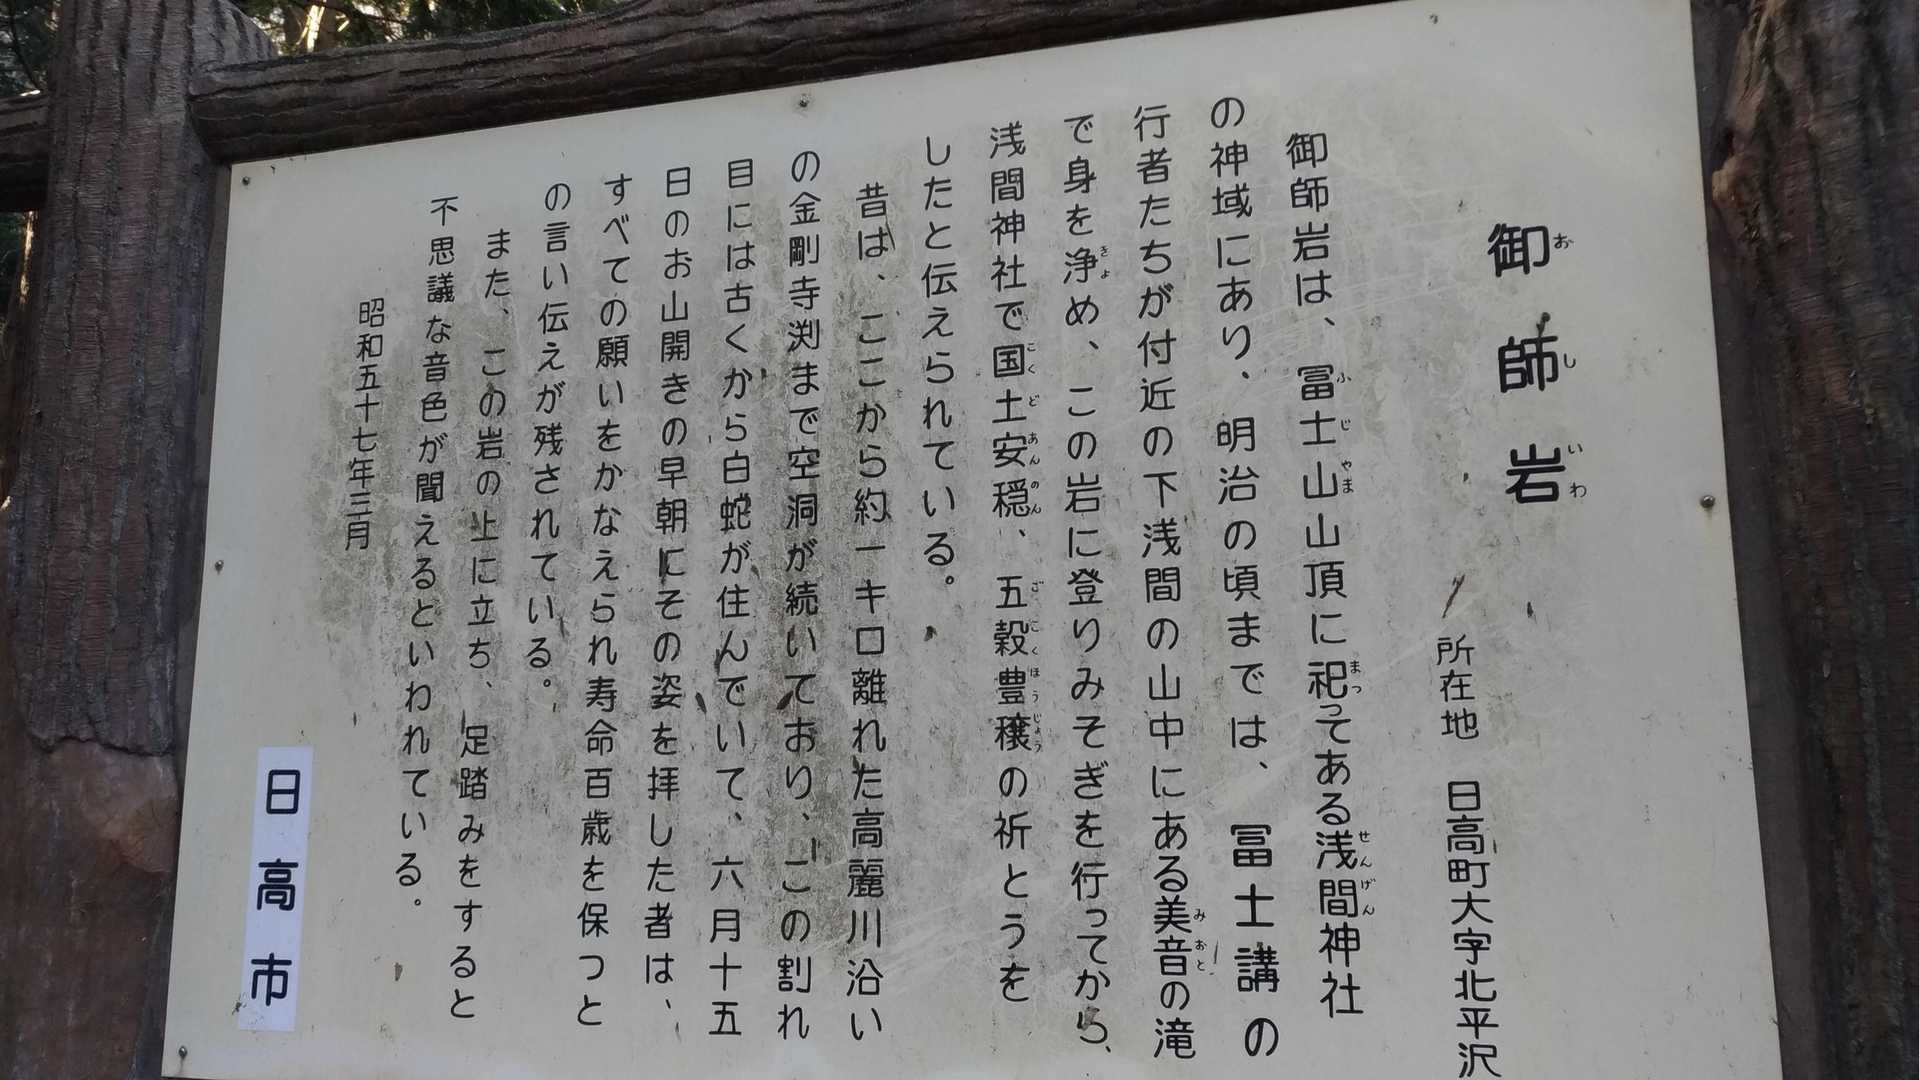 御師岩
所在地 日高町大字北平沢
御師岩は、冨士山山頂に祀ってある浅間神社
の神域にあり、明治の頃までは、冨士講の
行者たちが付近の下浅間の山中にある美音の滝
で身を浄め、この岩に登りみそぎを行ってから、
浅間神社で国土安穏、五穀豊穣の祈とうを
したと伝えられている。
昔は、ここから約一キロ離れた高麗川沿い
の金剛寺渕まで空洞が続いており、この割れ
目には古くから白蛇が住んでいて、六月十五
日のお山開きの早朝にその姿を拝した者は、
すべての願いをかなえられ寿命百歳を保つと
の言い伝えが残されている。
また、この岩の上に立ち、足踏みをすると
不思議な音色が聞えるといわれている。
昭和五十七年三月
日高市